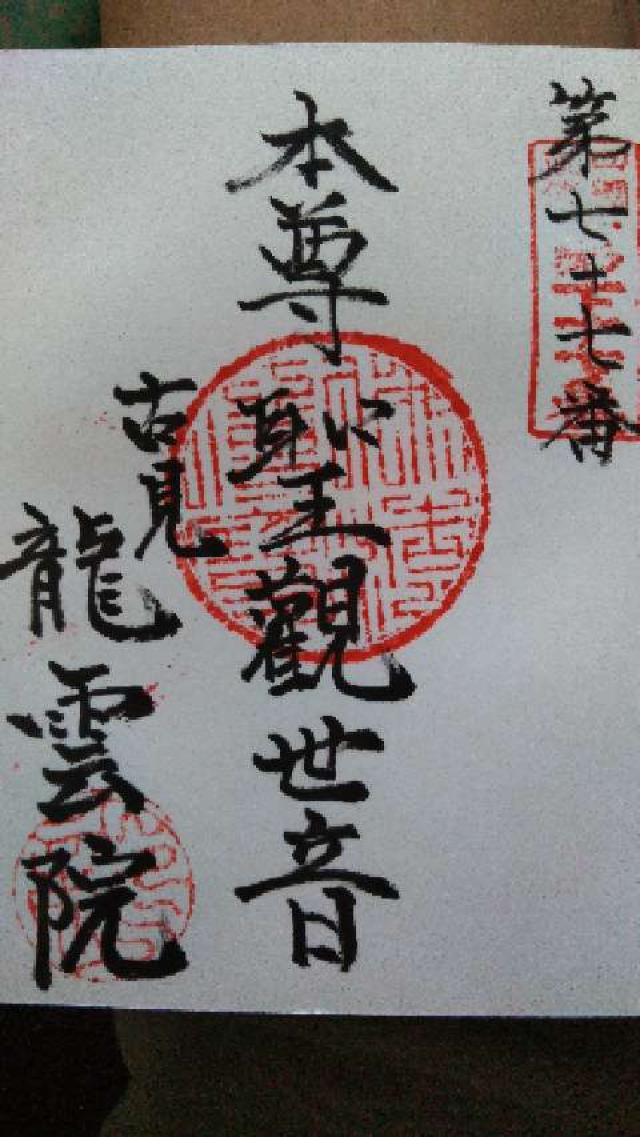 第七十七番
本尊聖觀世音
古見
龍雲院